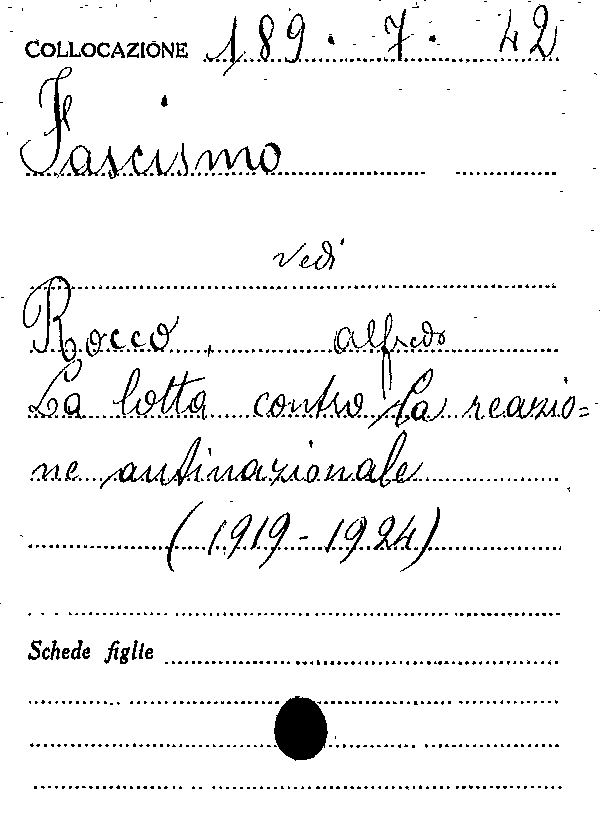 COLLOCAZIONE 189. 7. 42
Fascismo
vedi
Rocco, Alfredo
La lotta contro la reazio=
ne antinazionale
(1919-1924)
Schede figlie